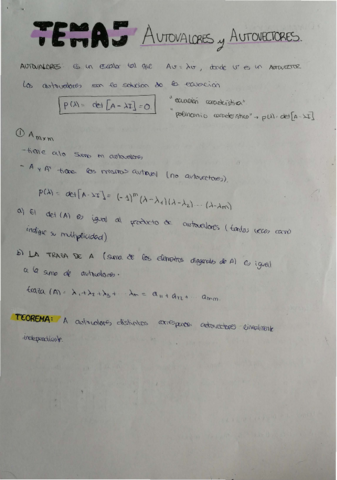 TEMA 5 AUTOVALORES y AUTOVECTORES.
AUTOVALORES es un escalar tal que Av = λv, donde v es un autovector
Los autovalores son la solución de la ecuación
p(λ) = det[A - λI] = 0
"ecuación característica"
"polinomio característico" → p(λ) = det[A - λI]
① A m×m
- tiene a lo sumo m autovalores
- A y Aᵗ tiene los mismos autoval (no autovectores).
p(λ) = det[A - λI] = (-1)ᵐ (λ-λ₁)(λ-λ₂) ... (λ-λm)
a) El det(A) es igual al producto de autovalores (tantas veces como
indique x multiplicidad)
b) LA TRAZA DE A (suma de los elementos diagonales de A) es igual
a la suma de autovalores.
traza (A) = λ₁+λ₂+λ₃+ λm = a₁₁+a₂₂+ amm
TEOREMA: A autovalores distintos corresponden autovectores linealmente
independientes.